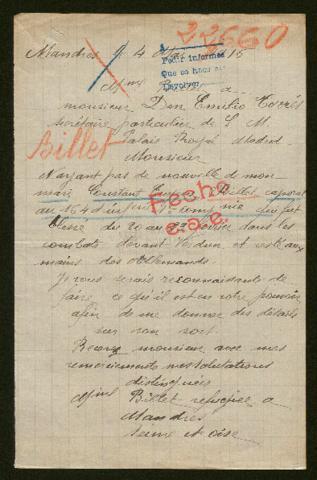 22660
Mandres 4 16
Pedir informes
Que se hace el
Devolver
Mme Billet a
monsieur Don Emilio Torrés
secrétaire particulier de S. M.
Palais Royal Madrid
Billet
Monsieur
N'ayant pas de nouvelle de mon
Constant Billet caporal
au 164 d'infanterie compagnie qui fut
Fecho
blessé du 20 au 22 février dans les
c.a.e.
combats devant Verdun et resté aux
mains des Allemands.
Je vous serais reconnaissante de
faire ce qu'il est en votre pouvoir
afin de me donner des détails
sur son sort.
Recevez monsieur avec mes
remerciements mes salutations
distinguées
Mme Billet refugiée a
Mandres
Seine et oise